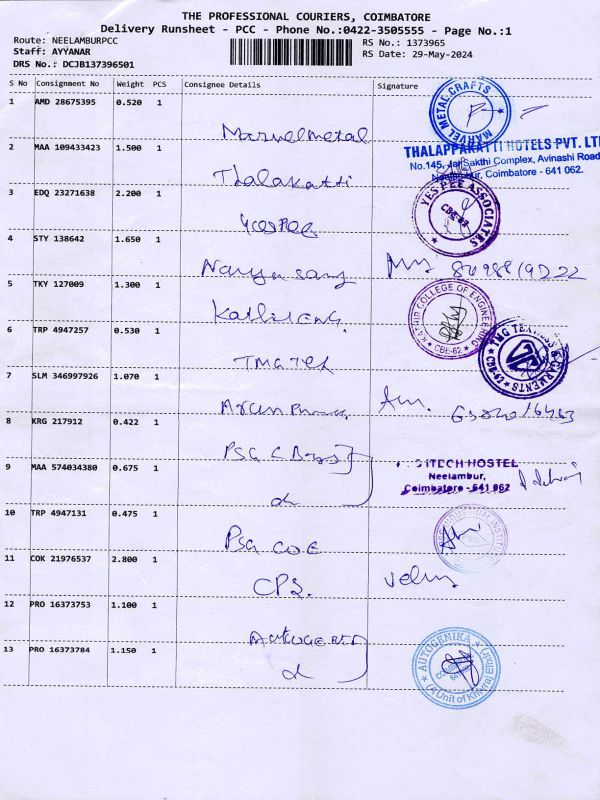 THE PROFESSIONAL COURIERS, COIMBATORE
Delivery Runsheet - PCC - Phone No.:0422-3505555 - Page No.:1
Route: NEELAMBURPCC
RS No.: 1373965
Staff: AYYANAR
RS Date: 29-May-2024
DRS No.: DCJB137396501
S No Consignment No Weight PCS Consignee Details Signature
1 AMD 28675395 0.520 1
Marvelmetal
MARVEL METAL CRAFTS
2 MAA 109433423 1.500 1
Thalakatti
THALAPPAKATTI HOTELS PVT. LT
No.145, Jai Sakthi Complex, Avinashi Road
Neelambur, Coimbatore - 641 062.
3 EDQ 23271638 2.200 1
YES PEE ASSOCIATES
4 STY 138642 1.650 1
5 TKY 127009 1.300 1
KATHIR COLLEGE OF ENGINEERING
CBE-62
6 TRP 4947257 0.530 1
7 SLM 346997926 1.070 1
8 KRG 217912 0.422 1
9 MAA 574034380 0.675 1
ITECH HOSTEL
Neelambur,
Coimbatore - 641 062
10 TRP 4947131 0.475 1
Psg COE
11 COK 21976537 2.800 1
CPS.
12 PRO 16373753 1.100 1
13 PRO 16373784 1.150 1
AUTOGENIKA